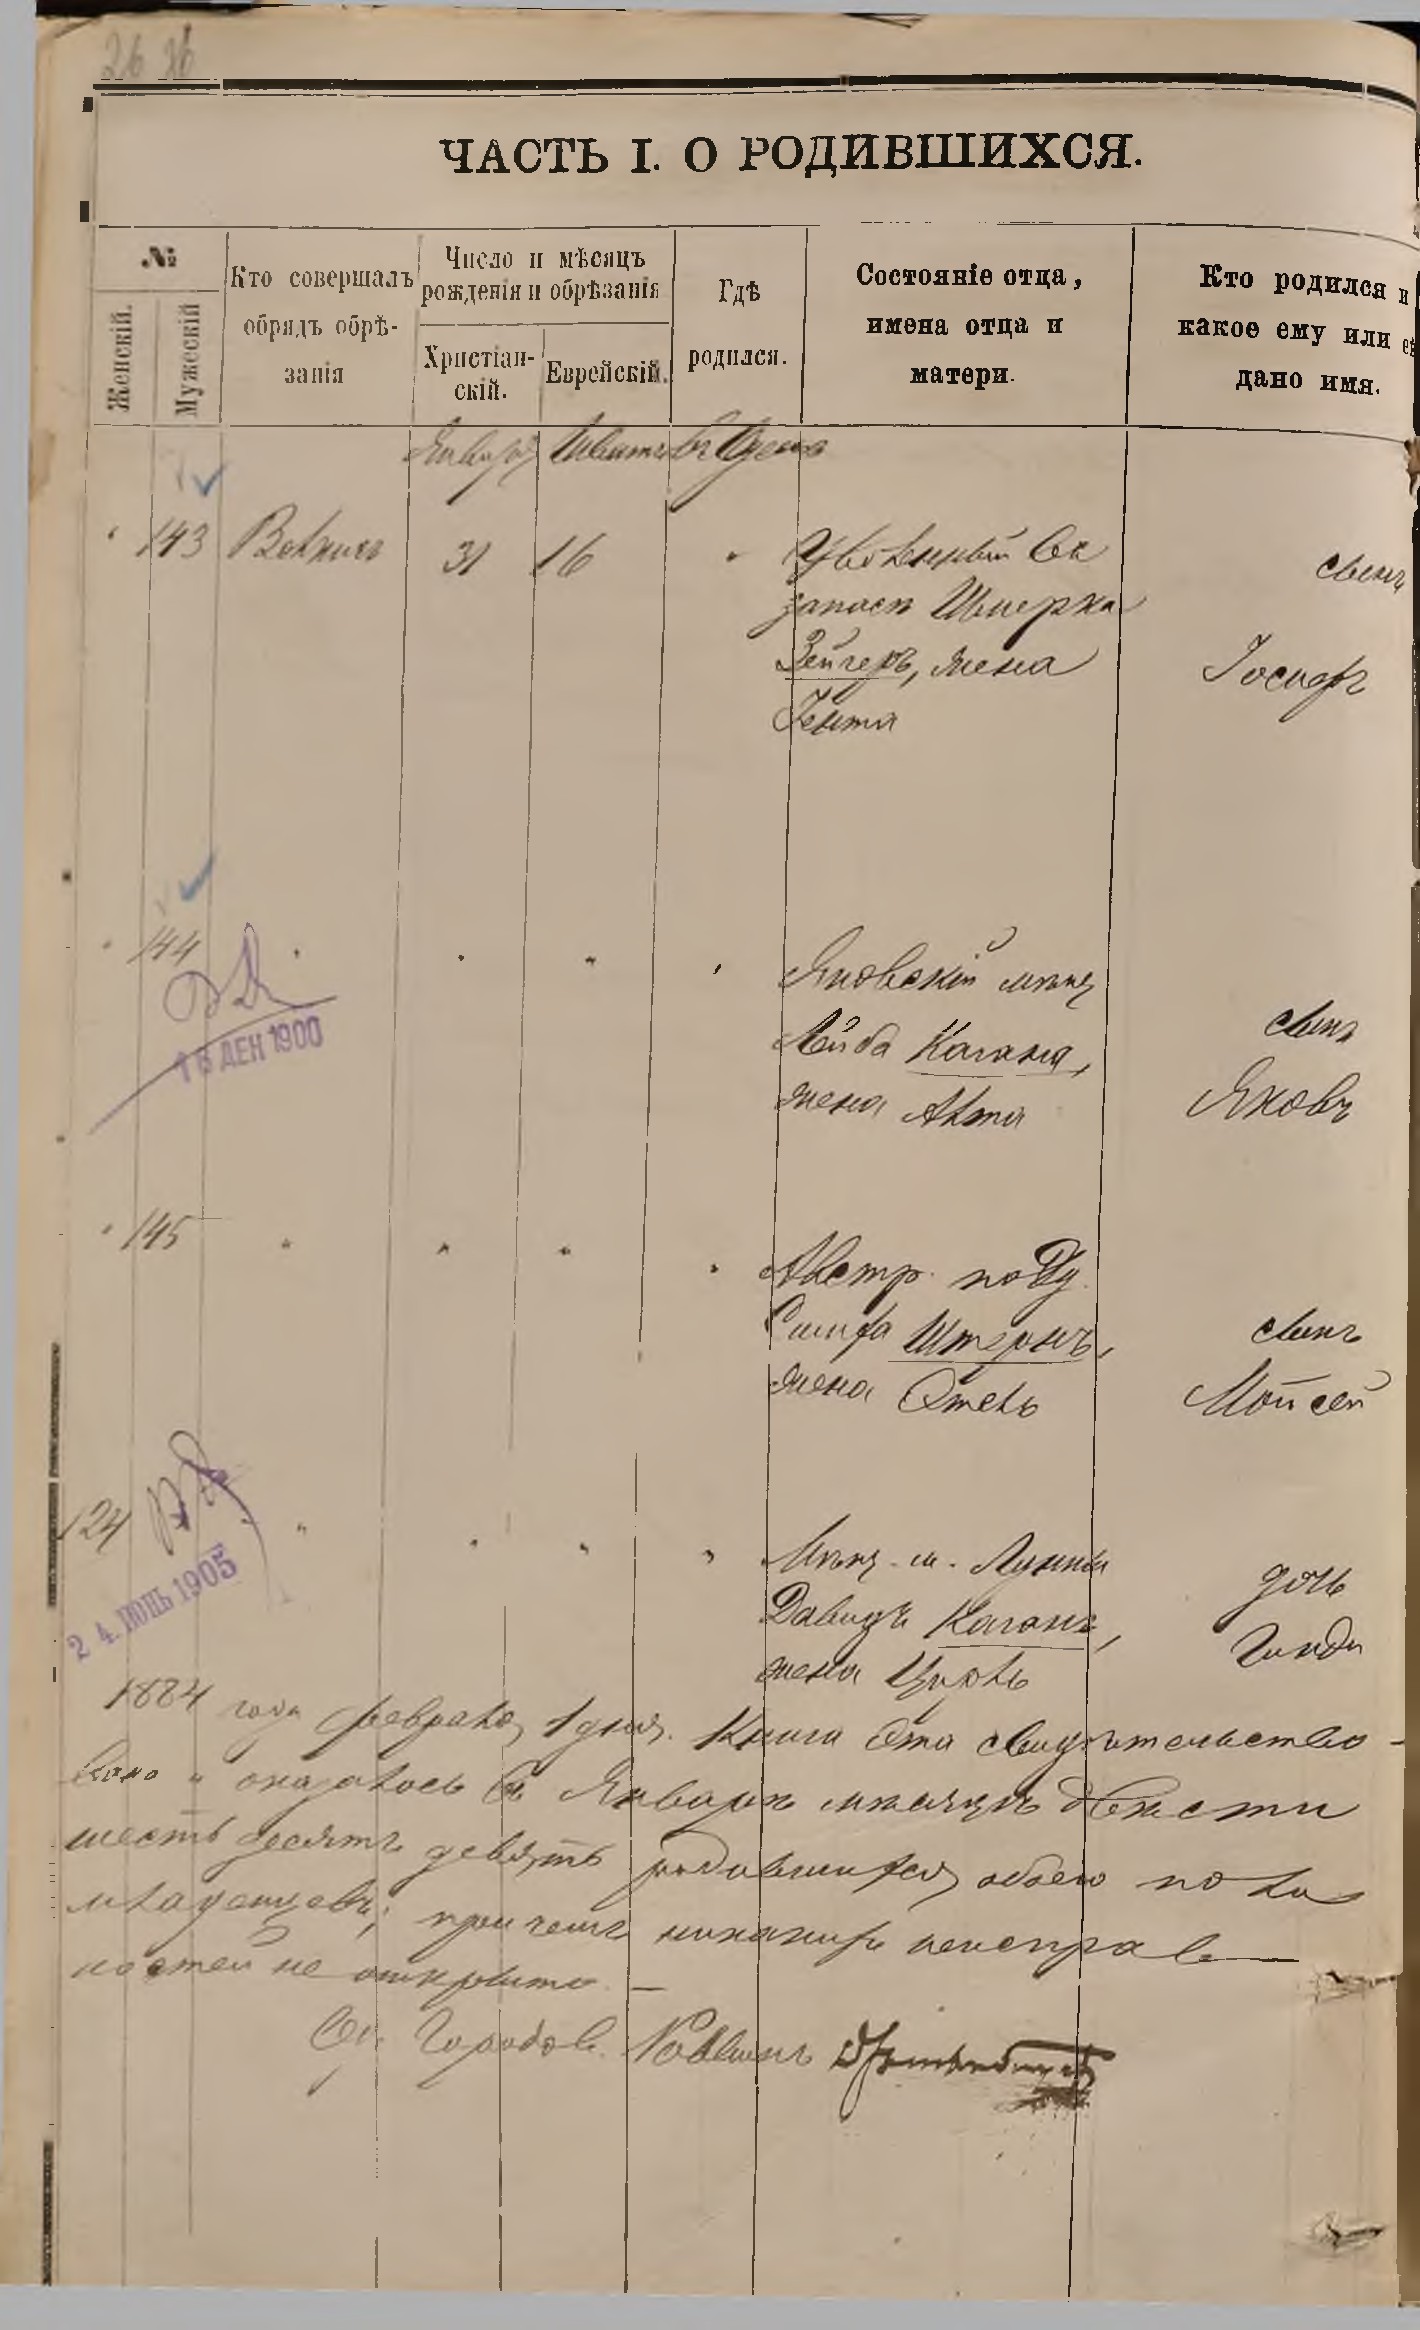 26 26
ЧАСТЬ I. О РОДИВШИХСЯ.
№
Женскій.
Мужескій
Кто совершалъ
обрядъ обрѣ-
занія
Число и мѣсяцъ
рожденія и обрѣзанія
Христіан-
скій.
Еврейскій.
Гдѣ
родился.
Состояніе отца,
имена отца и
матери.
Кто родился и
какое ему или
дано имя.
Январь Шватъ въ Одессѣ
143 31 16 " Уволенный въ
запасъ Шмерка
Зейгеръ, жена
Гентя
сынъ
Іосифъ
144 " " " " Яновскій мѣщ
Лейба Коганъ,
жена
сынъ
Яковъ
16 ДЕК 1900
145 " " " " Австр. подд.
Симха Штернъ,
жена Этель
сынъ
Мойсей
124 " " " " Мѣщ. м.
Давидъ Коганъ,
жена Цирль
дочь
24 ІЮНЬ 1905
1884 года февраля 1 дня. Книга эта свидѣтельство-
вана и оказалось въ Январѣ мѣсяцѣ двѣсти
шестьдесятъ девять родившихся обоего пола
младенцевъ; при чемъ никакихъ неисправ-
ностей не открыто. —
Од. Городов. Раввинъ